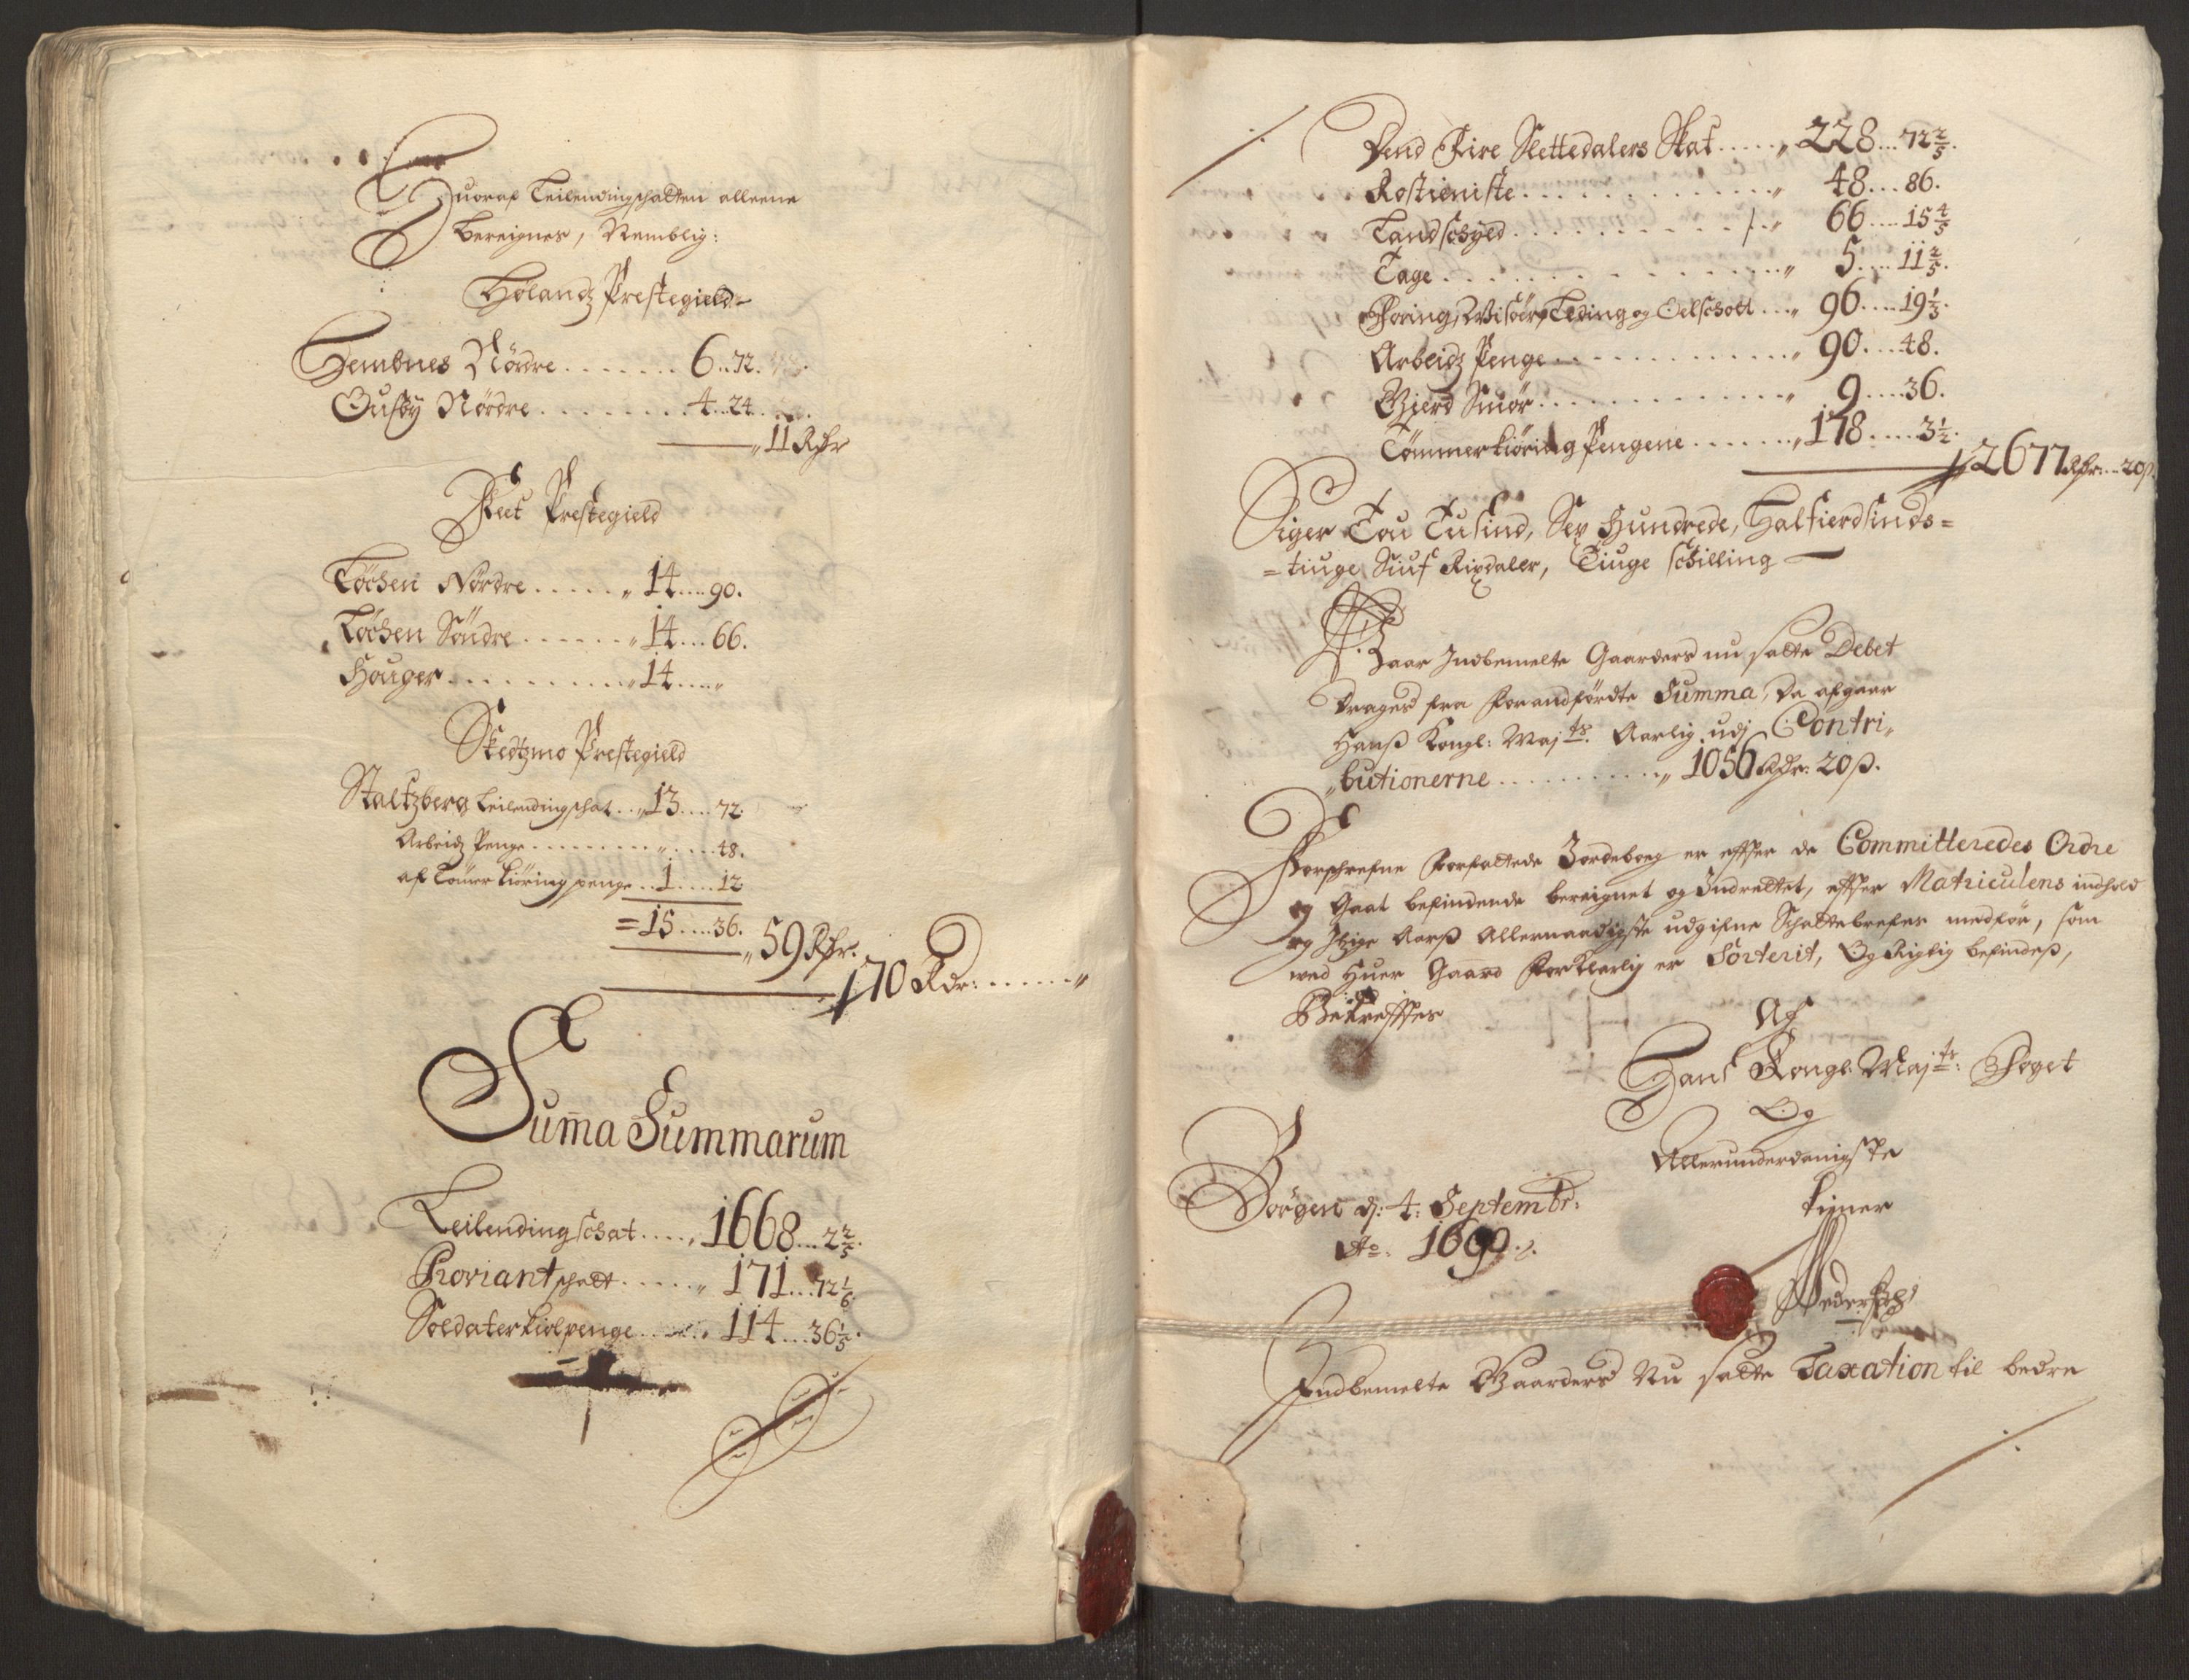 Huoraf Leilendingschatten alleene
bereignes, Nemblig:
Hølandz Prestegield
Hembnes Nørdre . . . . . . . 6 .. 72.
Ousby Nørdre . . . . . . . . 4 .. 24 . . .
„ 11 Rdr
Feet Prestegield
Løchen Nørdre . . . . . „ 14 .... 90.
Løchen Søndre . . . . . . „ 14 .... 66.
Houger . . . . . . . . . „ 14 .... „
Skedtzmo Prestegield
Staltzberg Leilendingschat . . „ 13 .... 72.
Arbeidz Penge . . . . . . . . . „ .... 48.
af Tømerkiøring penge . . 1 .... 12
= 15 .... 36.
„ 59 Rdr.
170 Rdr: . . . . . „
Sum̅a Summarum
Leilendingschat . . . . „ 1668 ... 2 2/5.
Proviantschatt . . . . . „ 171 ... 72 1/6.
Soldaterkiolpenge . . . . „ 114 ... 36 1/5.
Dend Fire Slettedalers Skat . . . . . „ 228 ... 72 2/5.
Rostieniste . . . . . . . . . . . . „ 48 ... 86.
Landschyld . . . . . . . . . . . . „ 66 .... 15 4/5
Tage . . . . . . . . . . . . . . „ 5 .... 11 2/5.
Foring, Wisøer, Leding og Oelschott . . . „ 96 .... 19 1/3.
Arbeidz Penge . . . . . . . . . . . . „ 90 .... 48.
Gierd Smør . . . . . . . . . . . . . „ 9 .... 36.
Tømmerkiøring Pengene . . . . . . . „ 178 .... 3 1/2.
2677 Rdr: .. 20 ß
Siger Tou Tusind, Sex Hundrede, Halfierdsinds=
=tiuge Siuf Rixdaler, Tiuge schilling
Naar Indbemelte Gaarders nu satte Debet
drages fra forandførdte Summa, da afgaar
Hanß Kongl: Maj ts. Aarlig udj Contri„
„butionerne . . . . . . . . . . . „ 1056 Rdr: 20 ß.
Forschrefne forfattede Jordeboeg er effter de Committeredes Ordre
og Gaat befindende bereignet og Indrettet, effter Matriculens indhold
og Itzige Aarß Allernaadigste udgifne Schattebrefves medfør, som
ved Huer Gaard forklarlig er Sorterit, Og Rigtig befindeß,
Bekreffter
Af
Hans Kongl: Maj ts: Foget
Og
Allerunderdanigste
tiener
Borgen d: 4: Septembr:
Ao. 1690.
Peder
Indbemelte Gaarders Nu satte Taxation til bedre